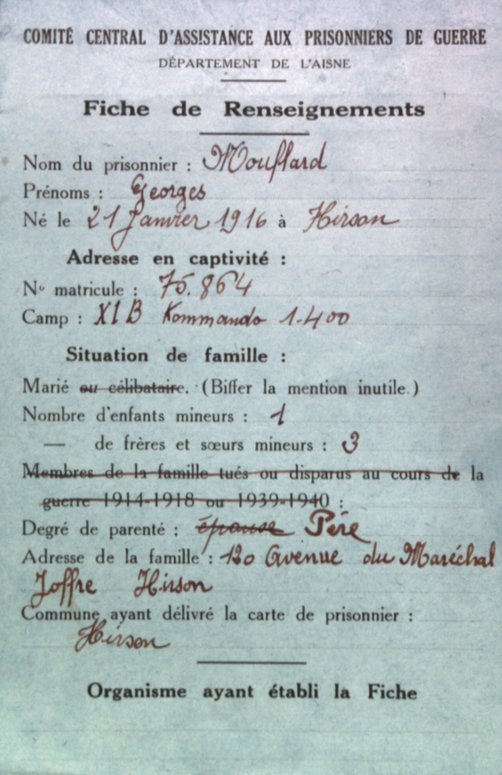 COMITÉ CENTRAL D'ASSISTANCE AUX PRISONNIERS DE GUERRE
DÉPARTEMENT DE L'AISNE
Fiche de Renseignements
Nom du prisonnier : Mouflard
Prénoms : Georges
Né le 21 Janvier 1916 à Hirson
Adresse en captivité :
No matricule : 75.864
Camp : XI B Kommando 1.400
Situation de famille :
Marié ou célibataire. (Biffer la mention inutile.)
Nombre d'enfants mineurs : 1
— de frères et sœurs mineurs : 3
Membres de la famille tués ou disparus au cours de la
guerre 1914-1918 ou 1939-1940 :
Degré de parenté : épouse Père
Adresse de la famille : 120 Avenue du Maréchal
Joffre Hirson
Commune ayant délivré la carte de prisonnier :
Hirson
Organisme ayant établi la Fiche